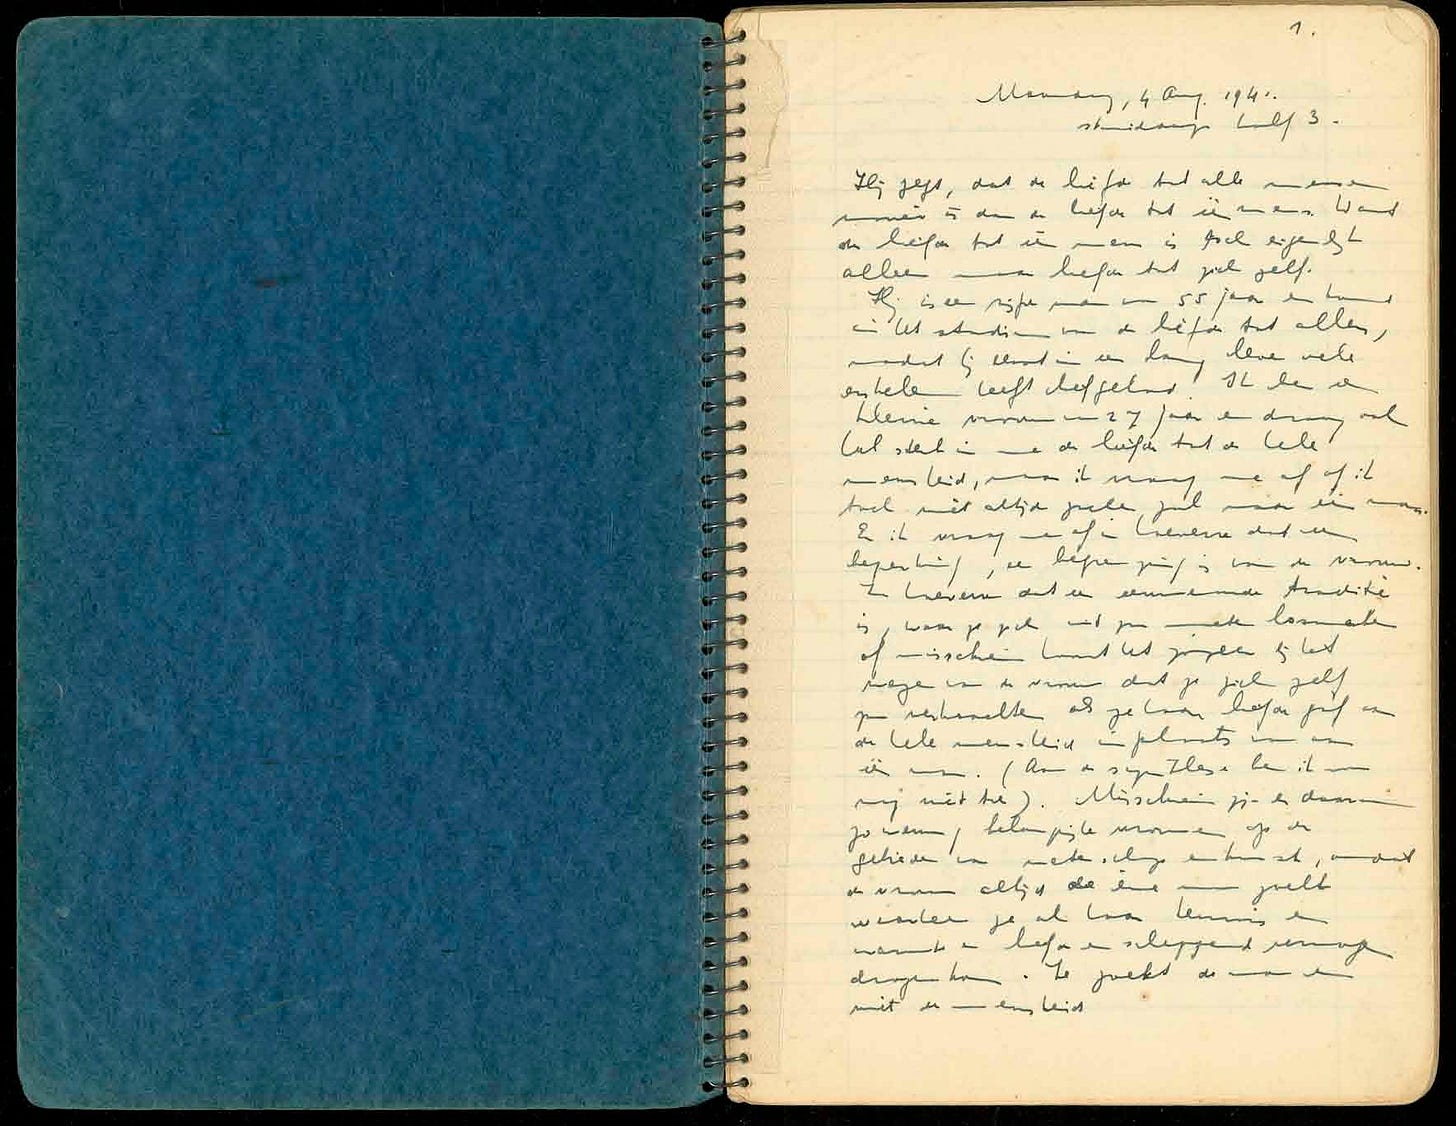 1.
Maandag, 4 Aug. 1941.
's middags half 3.
Hij zegt, dat de liefde tot alle mensen
mooier is dan de liefde tot één mens. Want
de liefde tot één mens is toch eigenlijk
alleen maar liefde tot zich zelf.
Hij is een rijpe man van 55 jaar en
in het stadium van de liefde tot allen,
nadat hij eerst in een lang leven vele
enkelen heeft liefgehad. Ik ben een
kleine vrouw van 27 jaar en draag ook
heel sterk in me de liefde tot de hele
mensheid, maar ik vraag me af of ik
toch niet altijd zoeken zal naar één man.
En ik vraag me af in hoeverre dat een
beperking, een begrenzing is van de vrouw.
In hoeverre dat een eeuwenoude traditie
is, waar ze zich uit zou moeten losmaken
of misschien hoort het zozeer bij het
wezen van de vrouw dat ze zich zelf
zou verkrachten als ze haar liefde gaf aan
de hele mensheid in plaats van aan
één man. (Aan de synthese ben ik nog
nog niet toe). Misschien zijn er daarom
zo weinig belangrijke vrouwen op de
gebieden van wetenschap en kunst, omdat
de vrouw altijd de éne man zoekt
waaraan ze al haar kennis en
warmte en liefde en scheppend vermogen
Ze zoekt de man en
niet de mensheid